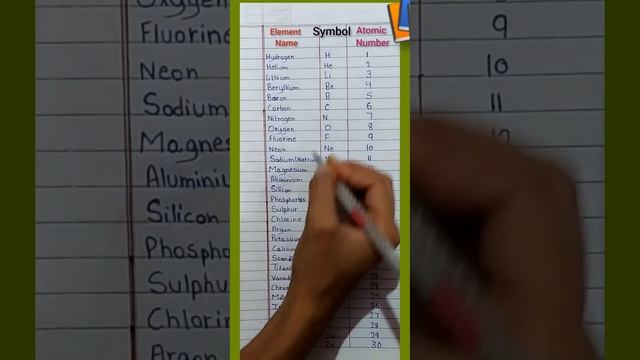 Oxygen
Fluorine
Neon
Sodium
Magnes
Aluminiu
Silicon
Phospho
Sulphu
Chlorin
Argon
Element Name Symbol Atomic Number
Hydrogen H 1
Helium He 2
Lithium Li 3
Beryllium Be 4
Boron B 5
Carbon C 6
Nitrogen N 7
Oxygen O 8
Fluorine F 9
Neon Ne 10
Sodium (Natrium) N 11
Magnesium
Aluminium
Silicon
Phosphorus
Sulphur
Chlorine
Argon
Potassium
Calcium
Scandi
Titani
Vanad 23
Chro 24
25
26
27
28
Cu 29
Zn 30
9
10
11
12